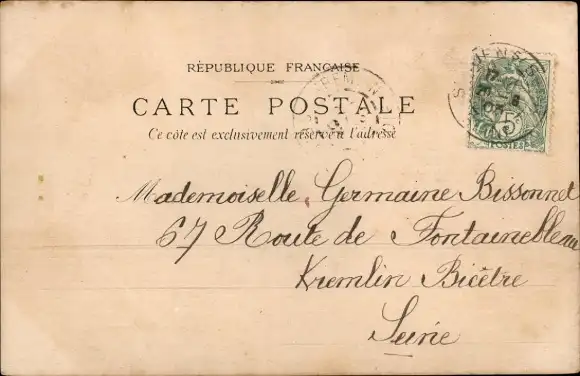 RÉPUBLIQUE FRANÇAISE
CARTE POSTALE
Ce côté est exclusivement réservé à l'adresse
5
POSTES
Mademoiselle Germaine Bissonnet
67 Route de Fontainebleau
Kremlin Bicêtre
Seine